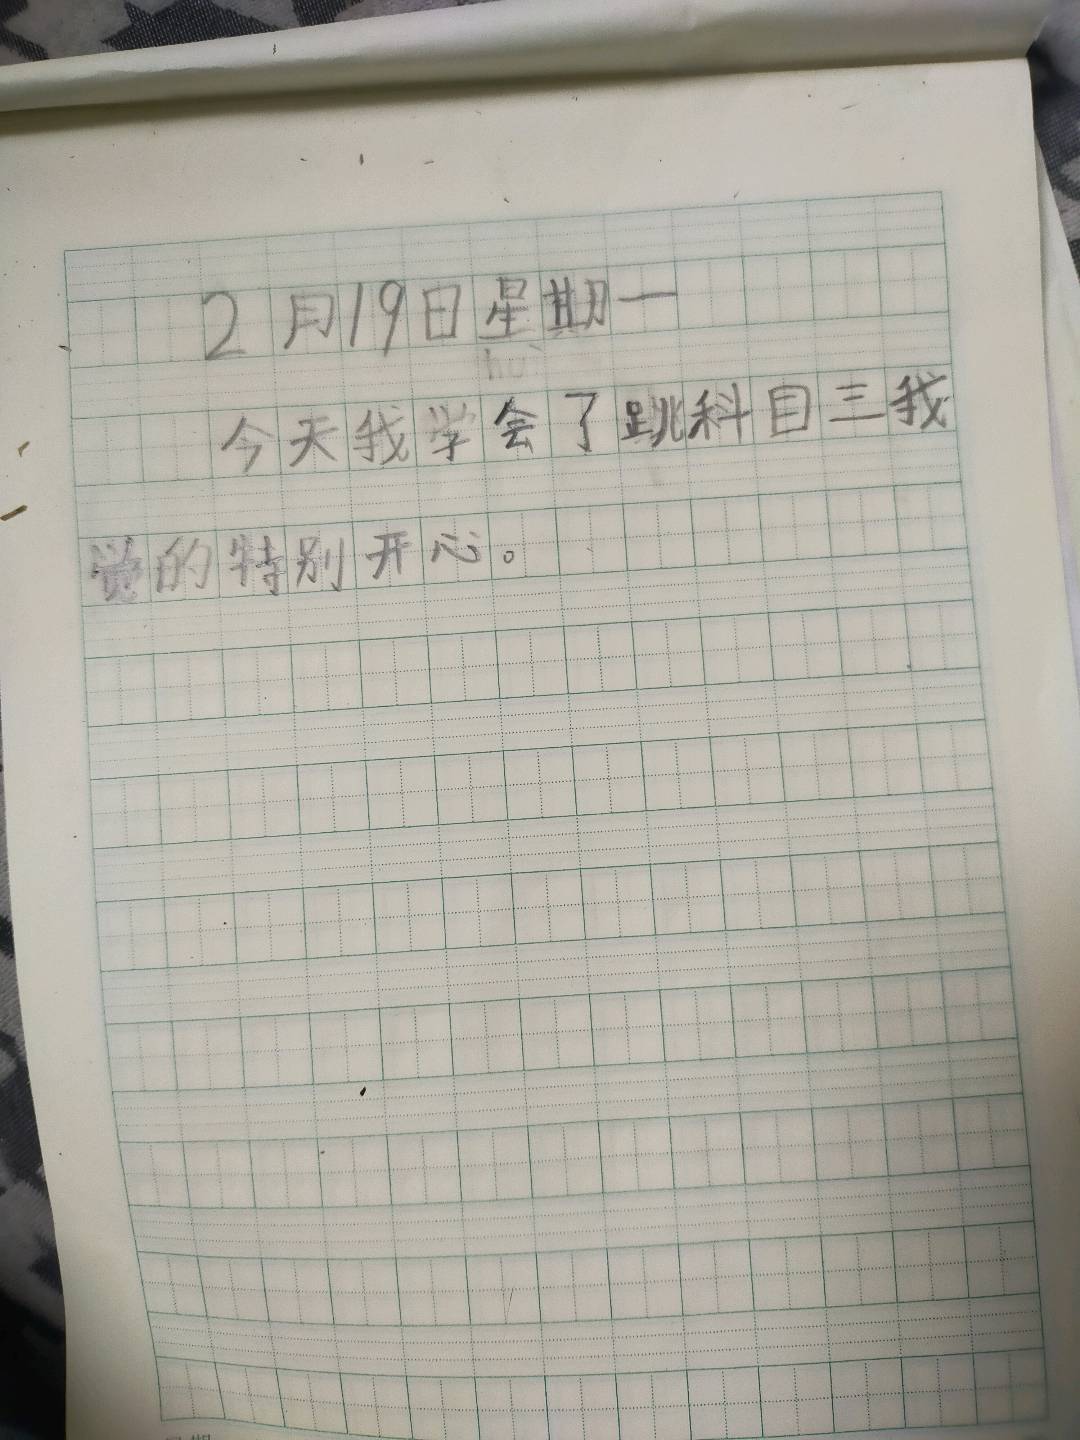 2月19日星期一
hui
今天我学会了跳科目三我
觉的特别开心。